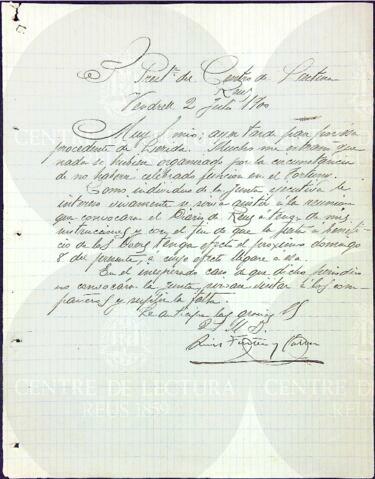 Sr. Presidte. del Centro de Lectura
Reus
Vendrell 2 Julio 1900
Muy Sr. mio: ayer tarde pasé por ésa
procedente de Lérida. Mucho me extrañó que
nada se hubiese organizado por la circunstancia
de no haberse celebrado función en el Fortuny.
Como individuo de la Junta ejecutiva le
intereso vivamente se sirva asistir a la reunión
que convocará el Diario de Reus á tenor de mis
instrucciones y con el fin de que la fiesta á benefi-
cio de las tenga efecto el próximo domingo
8 del presente, á cuyo efecto llegaré a ésa.
En el inesperado caso de que dicho periódico
no convocara la Junta, sírvase invitar á los com-
pañeros y suplir la falta.
Le anticipa las gracias SS
Q B S M
CENTRE DE LECTURA
REUS 1859